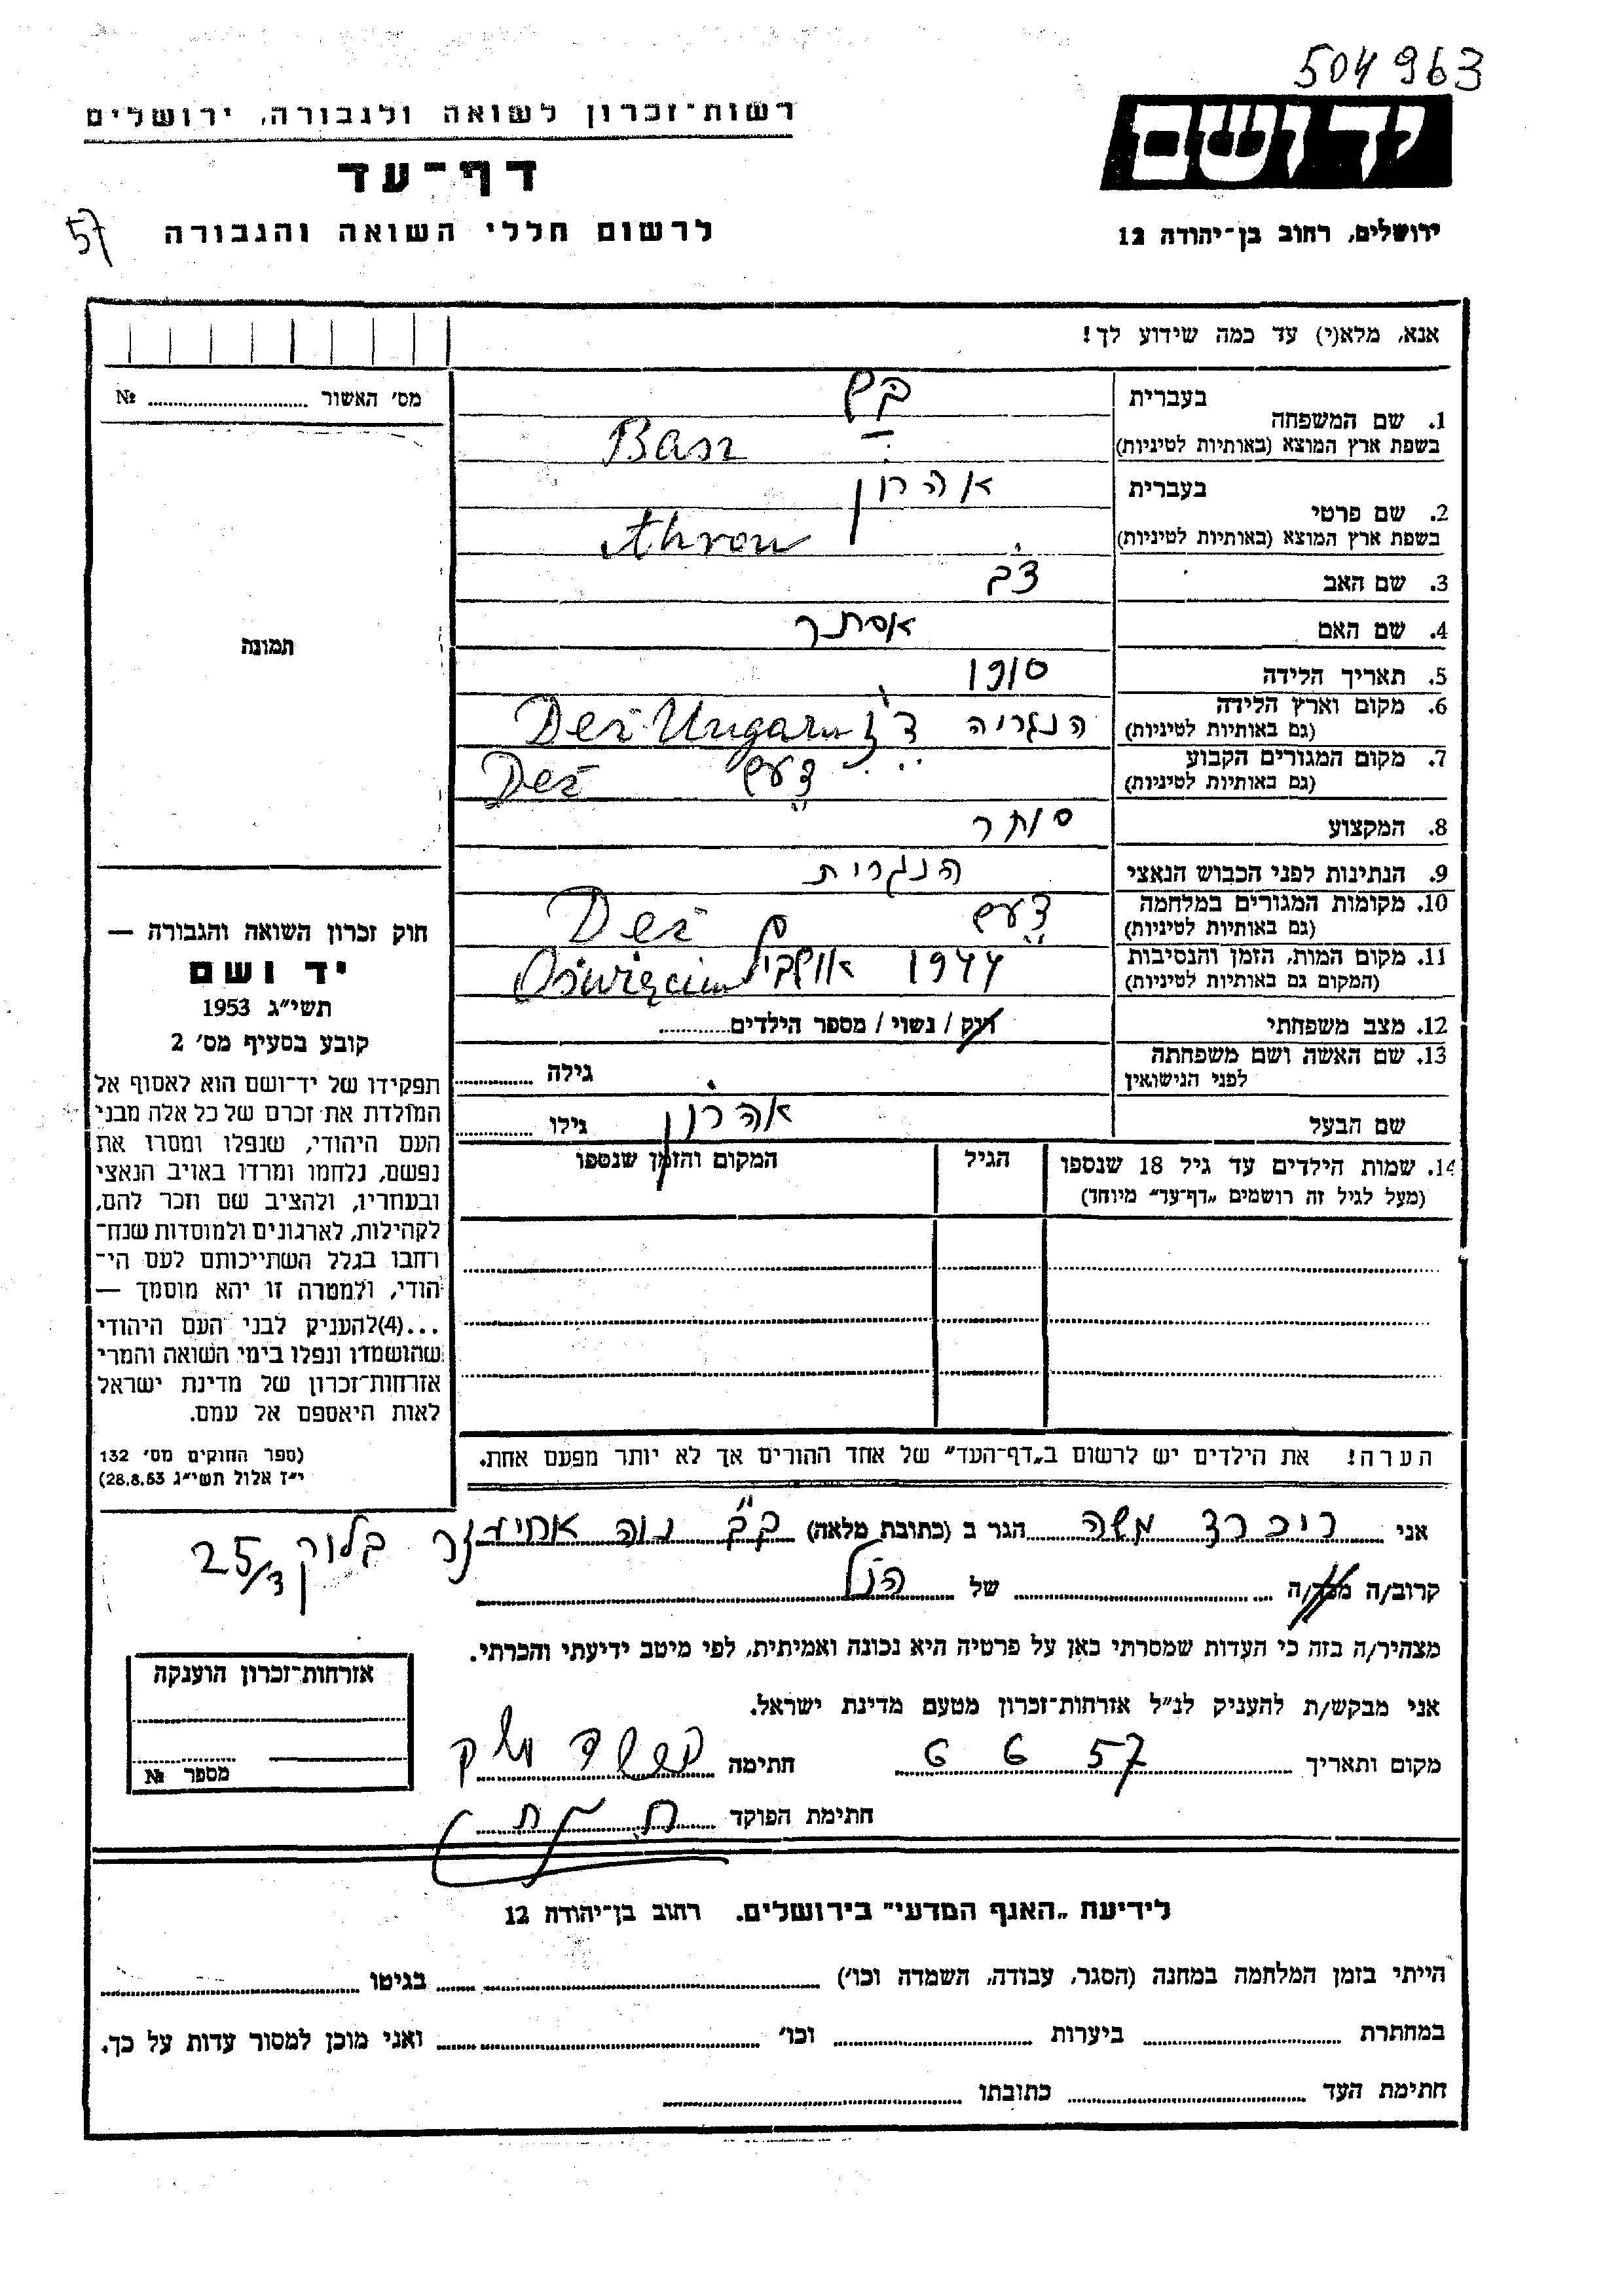 504963
רשות־זכרון לשואה ולגבורה, ירושלים
יד ושם
דף־עד
57
לרשום חללי השואה והגבורה
ירושלים, רחוב בן־יהודה 12
אנא, מלא(י) עד כמה שידוע לך!
מס׳ האשור № 
1. שם המשפחה
בעברית
בש
בשפת ארץ המוצא (באותיות לטיניות)
Basz
2. שם פרטי
בעברית
אהרון
בשפת ארץ המוצא (באותיות לטיניות)
Ahron
3. שם האב
צבי
4. שם האם
אסתר
תמונה
5. תאריך הלידה
1910
6. מקום וארץ הלידה
(גם באותיות לטיניות)
הנגריה דז Des Ungarn
7. מקום המגורים הקבוע
(גם באותיות לטיניות)
דעש Des
8. המקצוע
סוחר
9. הנתינות לפני הכבוש הנאצי
הנגרית
10. מקומות המגורים במלחמה
(גם באותיות לטיניות)
דעש Des
11. מקום המות, הזמן והנסיבות
(המקום גם באותיות לטיניות)
1944 Oświęcim
12. מצב משפחתי
רוק / נשוי / מספר הילדים
13. שם האשה ושם משפחתה
לפני הנישואין
גילה
שם הבעל
אהרון
גילו
14. שמות הילדים עד גיל 18 שנספו
(מעל לגיל זה רושמים „דף־עד״ מיוחד)
הגיל
המקום והזמן שנספו
חוק זכרון השואה והגבורה —
יד ושם
תשי״ג 1953
קובע בסעיף מס׳ 2
תפקידו של יד־ושם הוא לאסוף אל
המולדת את זכרם של כל אלה מבני
העם היהודי, שנפלו ומסרו את
נפשם, נלחמו ומרדו באויב הנאצי
ובעוזריו, ולהציב שם וזכר להם,
לקהילות, לארגונים ולמוסדות שנח־
רחבו בגלל השתייכותם לעם הי־
הודי, ולמטרה זו יהא מוסמך —
...(4)להעניק לבני העם היהודי
שהושמדו ונפלו בימי השואה והמרי
אזרחות־זכרון של מדינת ישראל
לאות היאספם אל עמם.
(ספר החוקים מס׳ 132
י״ז אלול תשי״ג 28.8.53)
הערה! את הילדים יש לרשום ב„דף־העד״ של אחד ההורים אך לא יותר מפעם אחת.
אני משה הגר ב (כתובת מלאה) נוה בלוק 25/3
קרוב/ה מכר/ה של הנ״ל
מצהיר/ה בזה כי העדות שמסרתי כאן על פרטיה היא נכונה ואמיתית, לפי מיטב ידיעתי והכרתי.
אני מבקש/ת להעניק לנ״ל אזרחות־זכרון מטעם מדינת ישראל.
מקום ותאריך 6 6 57 חתימה
חתימת הפוקד
אזרחות־זכרון הוענקה
מספר №
לידיעת „האגף המדעי״ בירושלים. רחוב בן־יהודה 12
הייתי בזמן המלחמה במחנה (הסגר, עבודה, השמדה וכו׳) בגיטו
במחתרת ביערות וכו׳ ואני מוכן למסור עדות על כך.
חתימת העד כתובתו